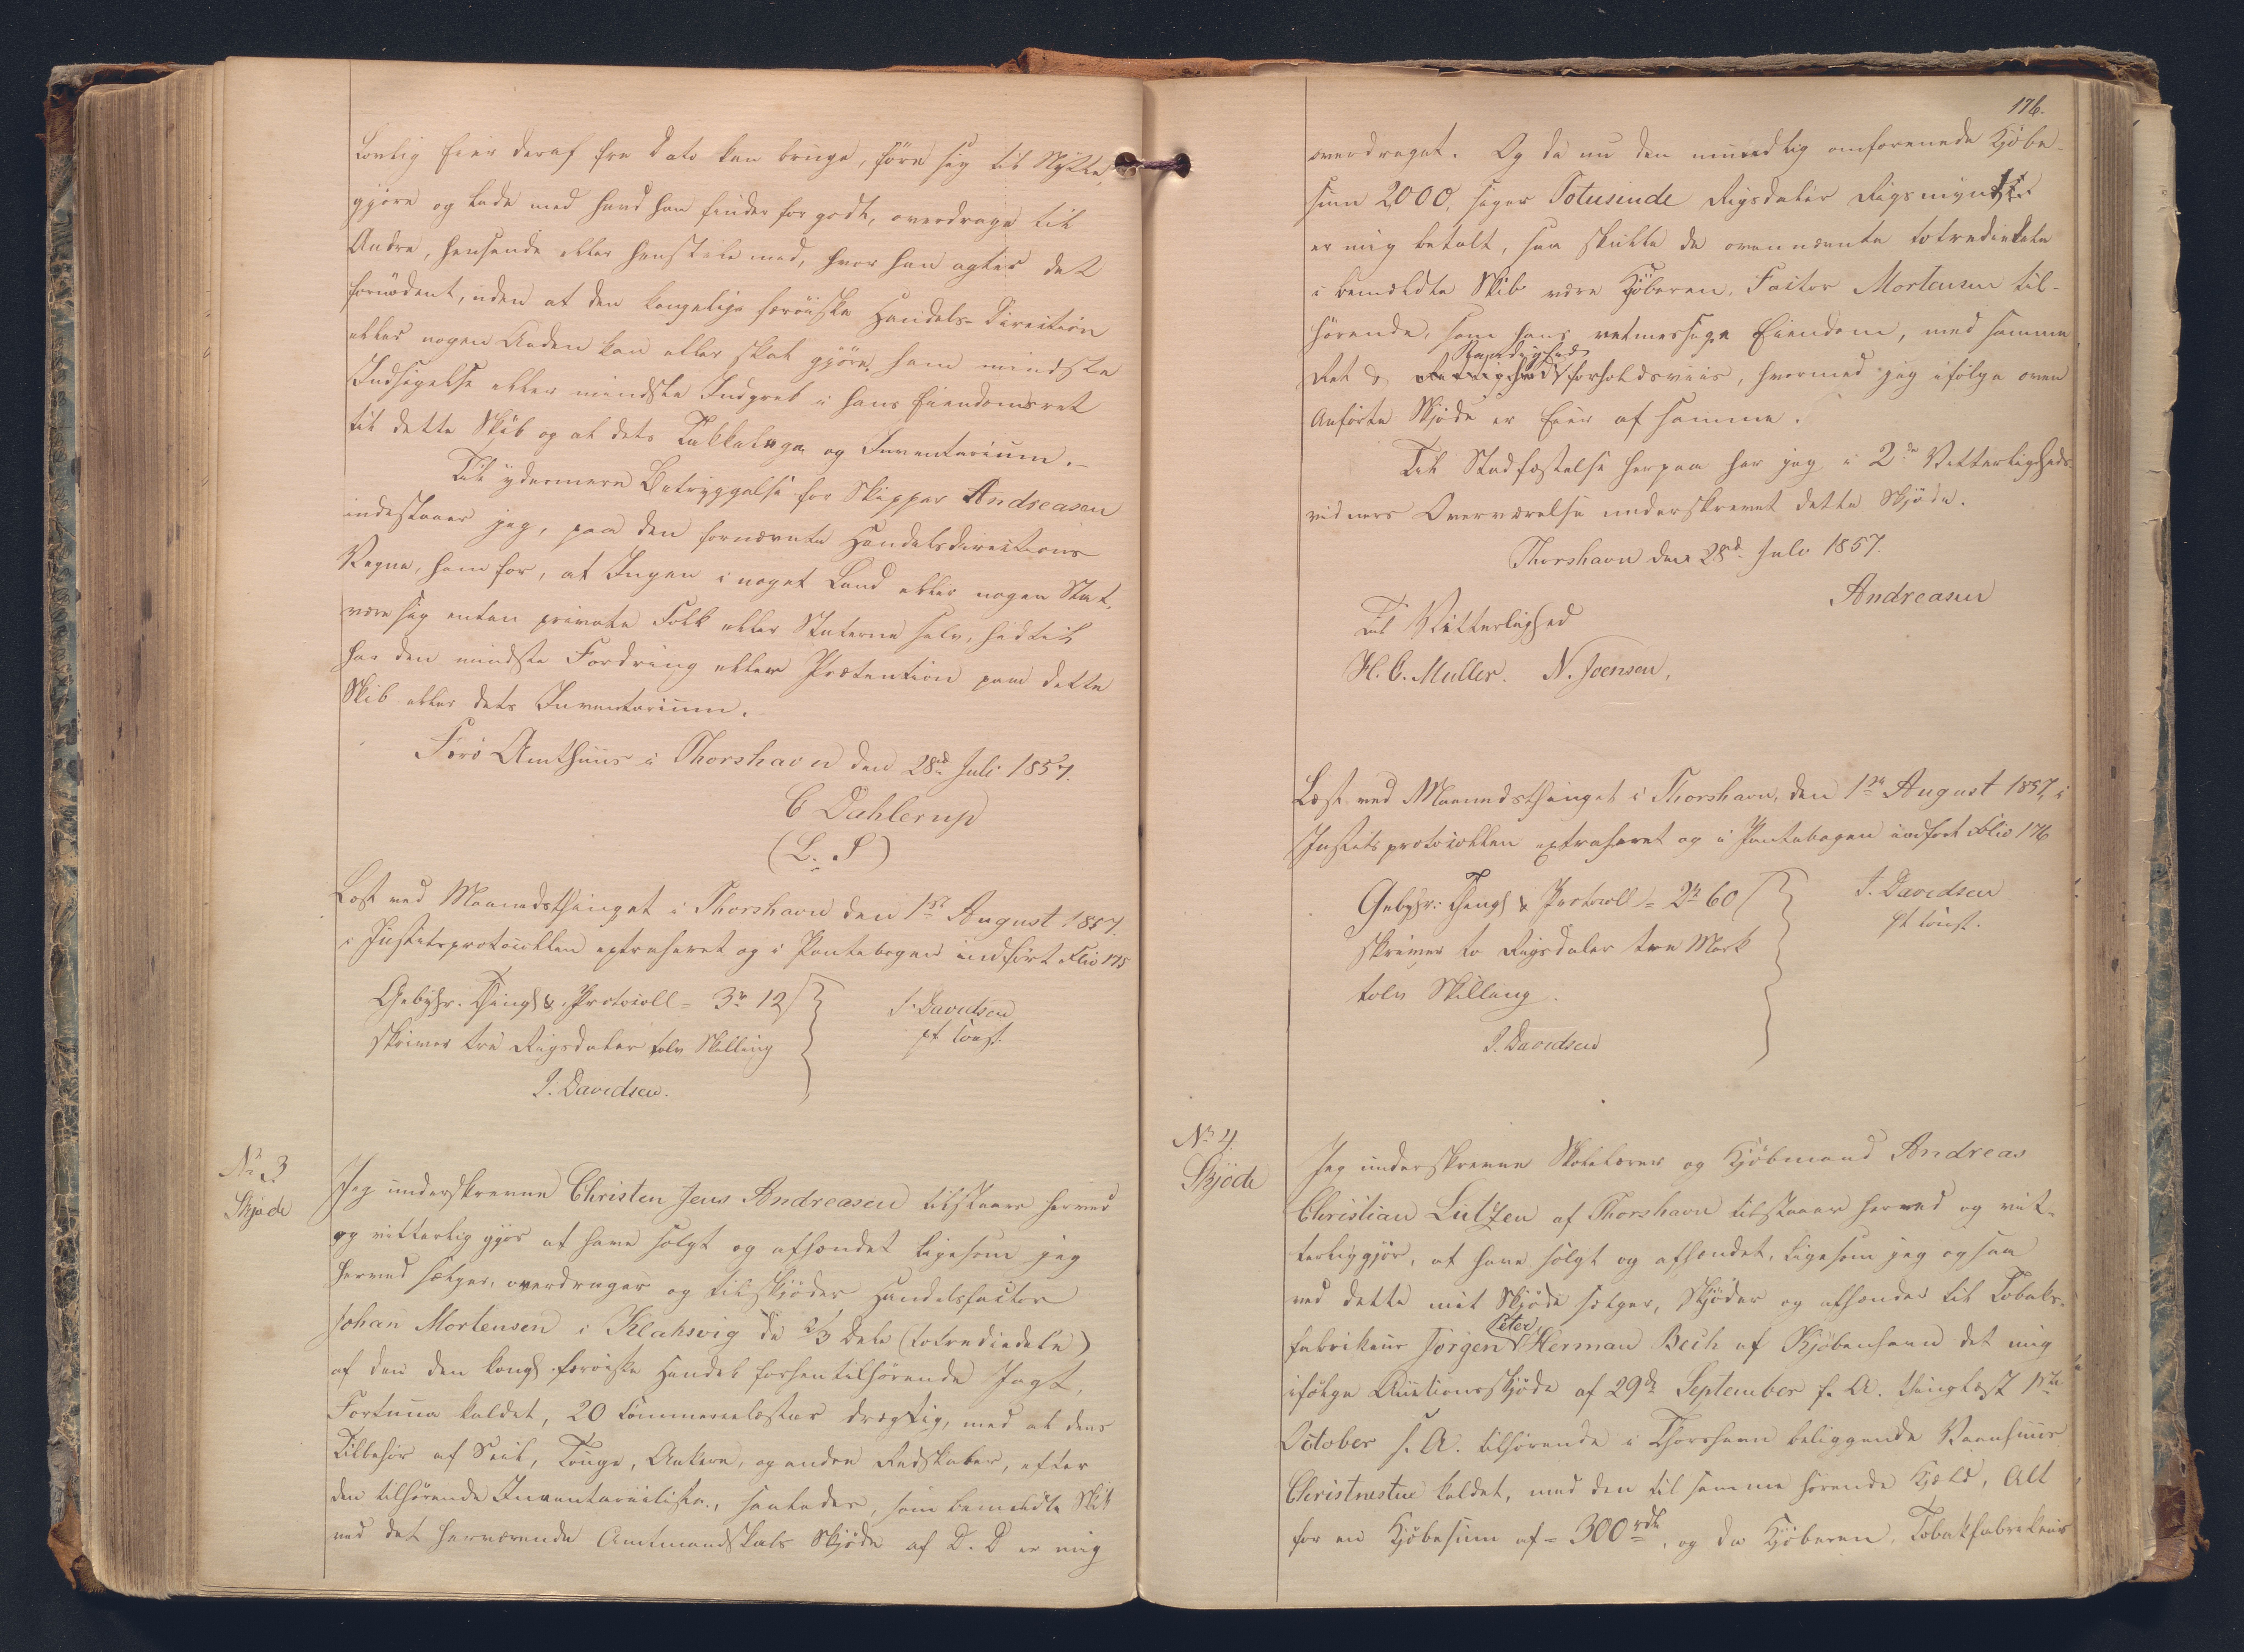 Lovlig Eier deraf fra Dato kan bruge, före sig til Nytte,
gjöre og lade med hvad han finder for godt, overdrage til
Andre, hensende eller henstile med, hvor han agter det
fornödent, uden at den kongelige færöiske Handels-Direction
eller nogen Anden kan eller skal gjöre ham mindste
Indsigelse eller mindste Indgreb i hans Eiendomsret
til dette Skib og al dets Takkelage og Inventarium.-
Til ydermere Betryggelse for Skipper Andreasen
indestaaer jeg, paa den fornævnte Handelsdirections
Vegne, ham for, at Ingen i noget Land eller nogen Stat,
være sig enten private Folk eller Staterne selv, hidtil
har den mindste Fordring eller Prætention paa dette
Skib eller dets Inventarium.
Færö Amthuus i Thorshavn den 28de Juli 1857.
C Dahlerup
(L. S)
Læst ved Maanedsthinget i Thorshavn den 1ste August 1857.
i Justitsprotocollen extraheret og i Pantebogen indfört Folio 175
Gebyhr. Thingl & Protocoll = 3rd 12ß
skriver tre Rigsdaler tolv Skilling
J. Davidsen.
J. Davidsen
pt const.
No 3
Skjøde
Jeg underskrevne Christen Jens Andreasen tilstaaer herved
og vitterlig gjör at have solgt og afhændet ligesom jeg
herved sælger, overdrager og tilskjöder Handelsfactor
Johan Mortensen i Klaksvig de 2/3 Dele (totrediedele)
af den den kongl. færöiske Handel forhen tilhörende Jagt,
Fortuna kaldet, 20 Commercelæster drægtig, med al dens
Tilbehör af Seil, Touge, Ankere, og andre Redskaber, efter
den tilhörende Inventariiliste, saaledes, som bemeldte Skib
ved det herværende Amtmandskabs Skjöde af D. D er mig
176.
overdraget. Og da nu den mundtlig omforenede Kjöbe-
sum 2000, siger Totusinde Rigsdaler Rigsmynt
er mig betalt, saa skulle de ovennævnte totrediedele
i bemeldte Skib være Kjöberen, Factor Mortensen til-
hörende, som hans retmessige Eiendom, med samme
Ret & Rettighed forholdsviis, hvormed jeg ifölge oven
Anförte Skjöde er Eier af samme.
Til Stadfæstelse herpaa har jeg i 2de Vitterligheds-
vidners Overværelse underskrevet dette Skjöde.
Thorshavn den 28de Juli 1857.
Andreasen
Til Vitterlighed
H. C. Muller. N. Joensen,
Læst ved Maanedsthinget i Thorshavn, den 1ste August 1857, i
Justitsprotocollen extraheret og i Pantebogen indfört Folio 176
Gebyhr: Thingl & Protocoll = 2rd 60ß
skriver to Rigsdaler tre Mark
tolv Skilling.
J. Davidsen
J. Davidsen
pt const.
No 4.
Skjöde
Jeg underskrevne Skolelærer og Kjöbmand Andreas
Christian Lützen af Thorshavn tilstaaer herved og vit-
terliggjör, at have solgt og afhændet, ligesom jeg ogsaa
ved dette mit Skjöde sælger, skjöder og afhænder til Tobaks-
fabrikeur Jörgen Peter Herman Bech af Kjöbenhavn det mig
ifölge Auctionsskjöde af 29de September f. A. thinglæst 1ste
October s. A. tilhörende i Thorshavn beliggende Vaanhuus
Christnestue kaldet, med den til samme hörende Kjeld, Alt
for en Kjöbesum af = 300rdl, og da Kjöberen, Tobakfabrikeur